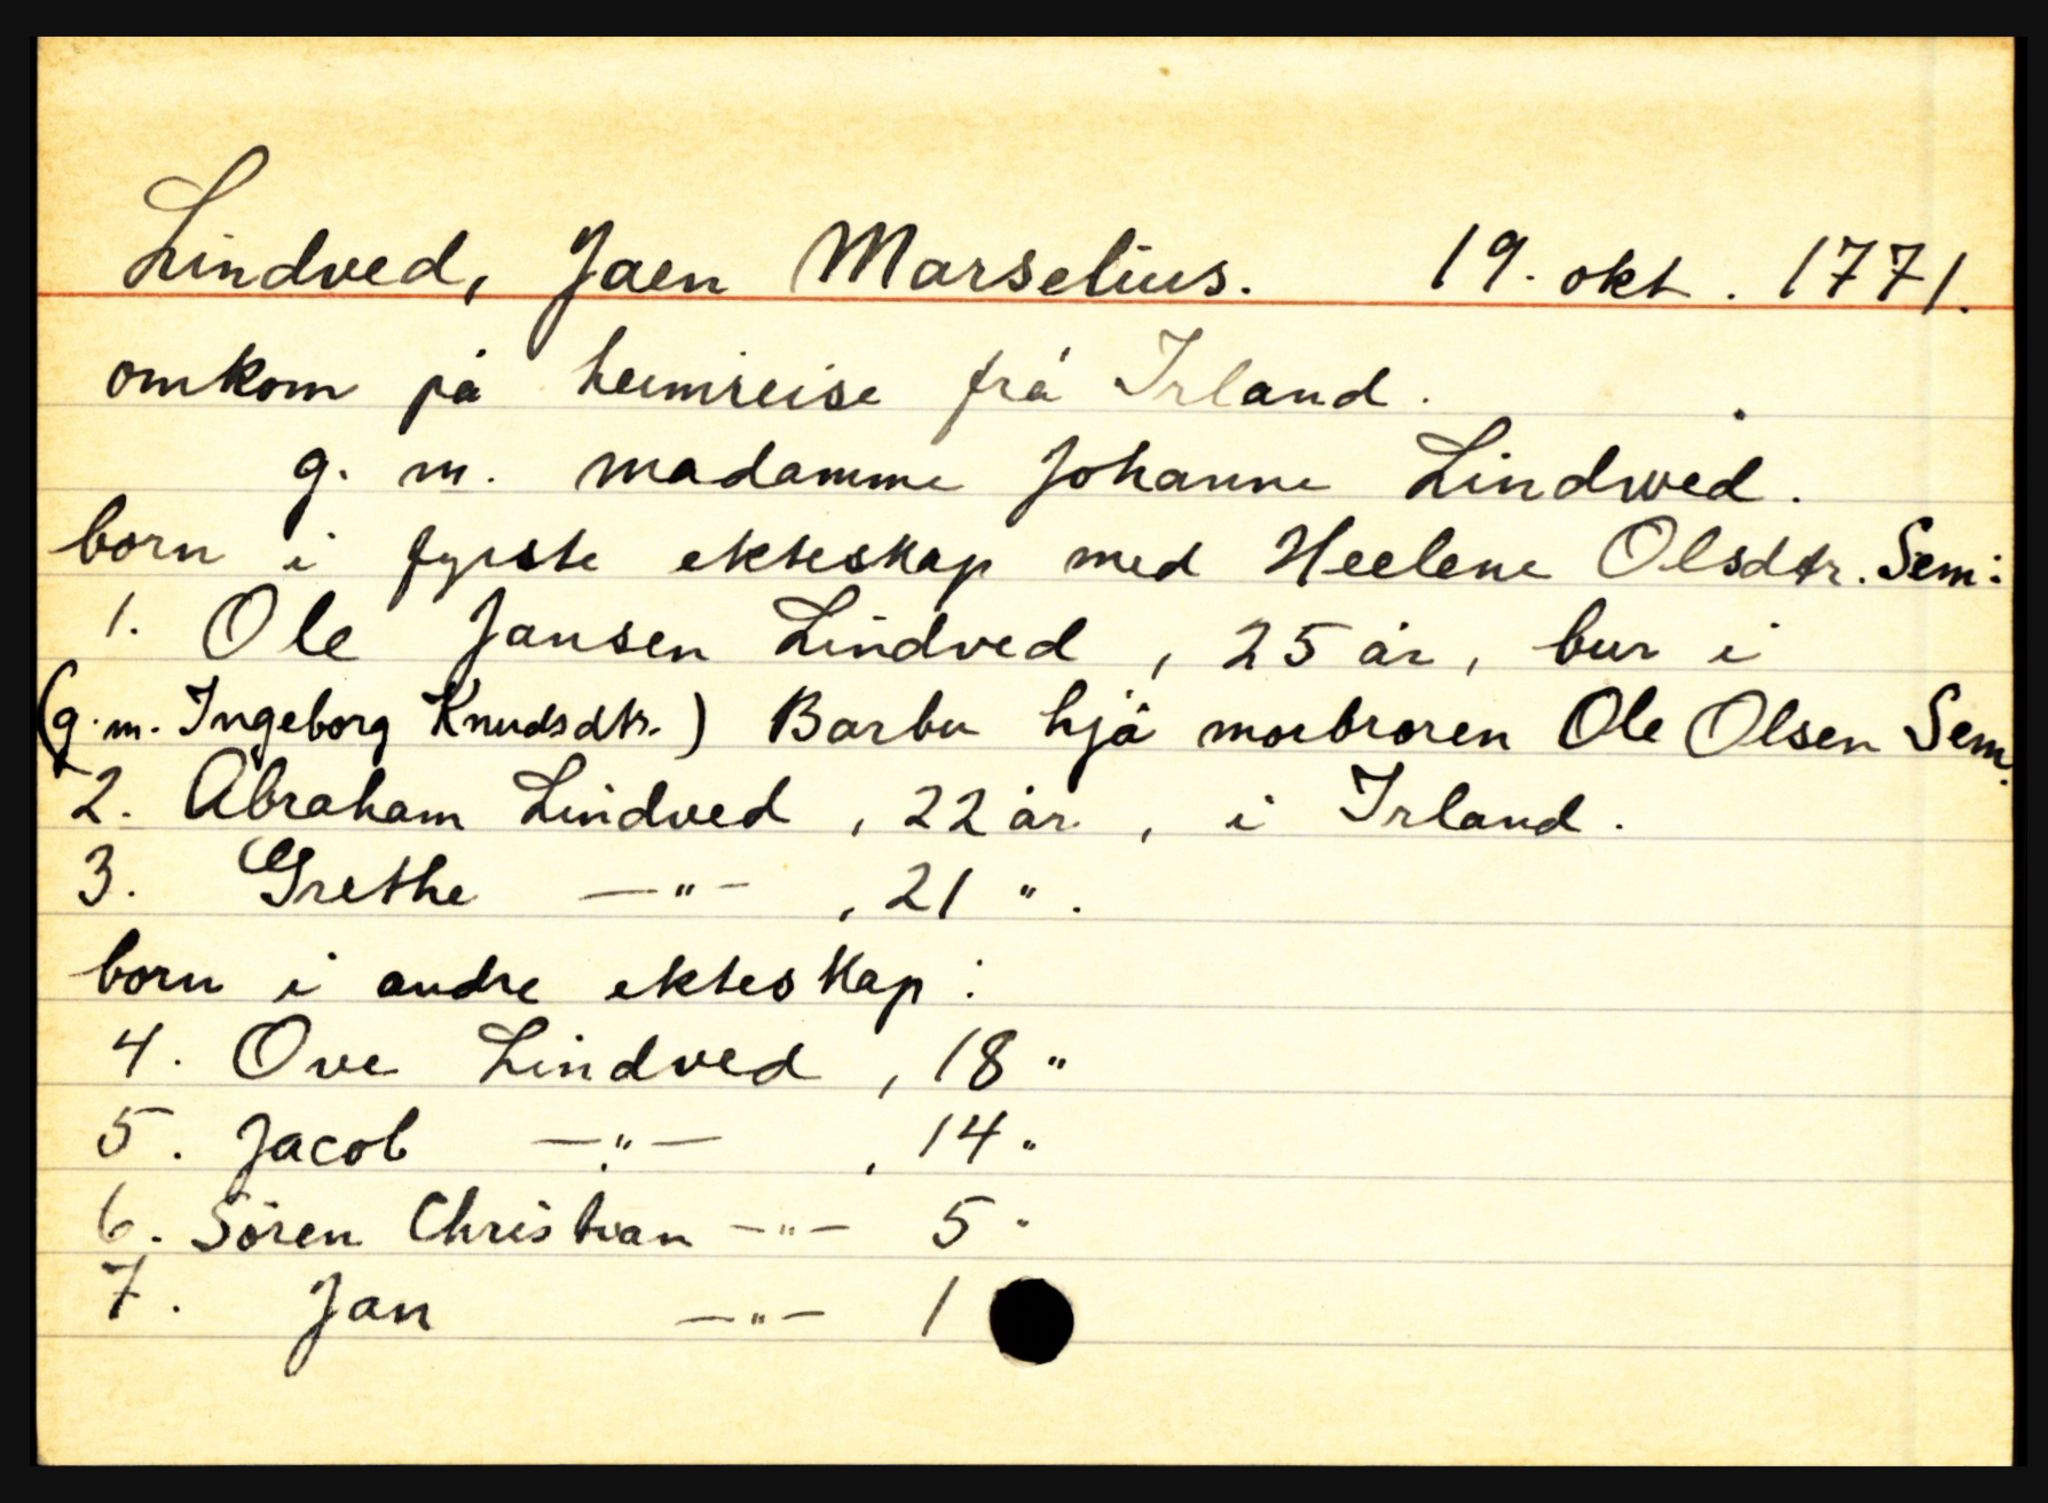 Lindved, Jaen Marselius. 19. okt. 1771.
omkom på heimreise frå Irland.
g. m. madamme Johanne Lindwed.
born i fyrste ekteskap med Heelene Olsdtr. Sem:
1. Ole Jansen Lindved, 25 år, bur i
(g. m. Ingeborg Knudsdtr.) Barbu hjå morbroren Ole Olsen Sem.
2. Abraham Lindved, 22 år, i Irland.
3. Grethe —"— , 21 ".
born i andre ekteskap:
4. Ove Lindved, 18 "
5. Jacob —"— , 14 "
6. Sören Christian —"— 5 "
7. Jan —"— 1